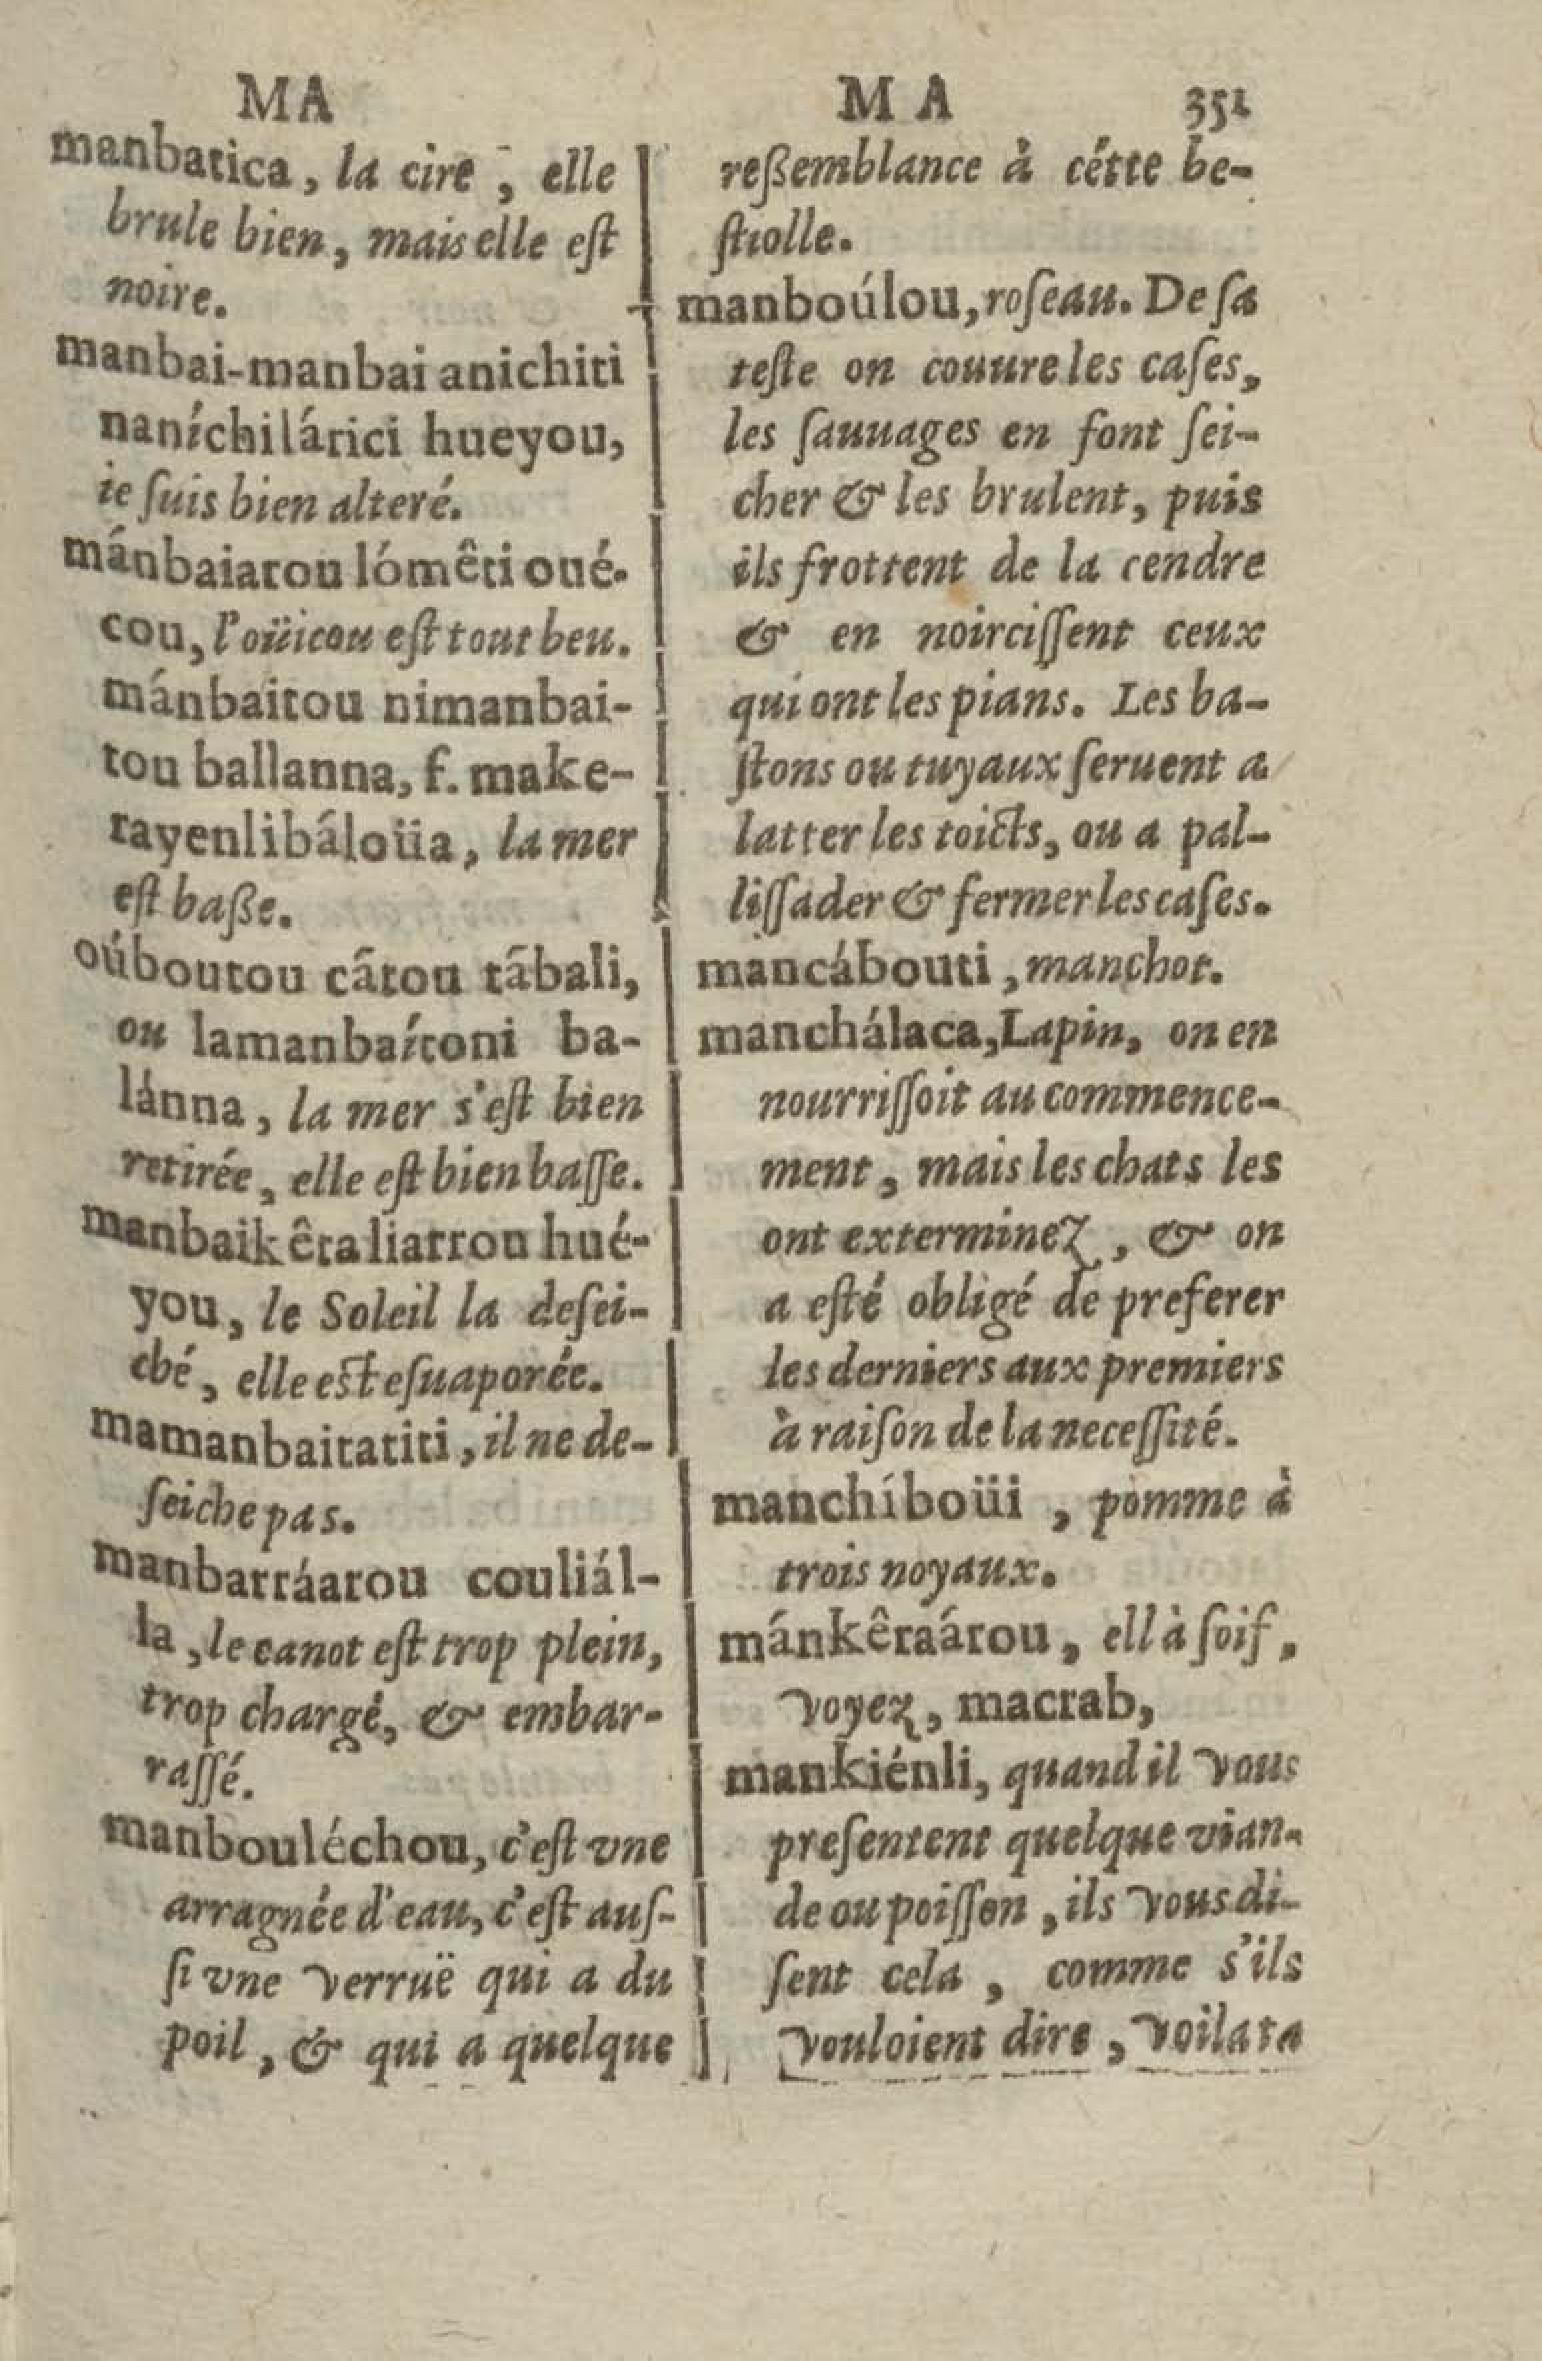 MA
manbatica, la cire, elle
brule bien, mais elle eſt
noire.
manbai-manbai anichiti
naníchilárici hueyou,
ie ſuis bien alteré.
mánbaiatou lómêti oué-
cou, l'oüicou eſt tout beu.
mánbaitou nimanbai-
tou ballanna, f. make-
rayenlibáloüa, la mer
eſt baße.
oúboutou cãtou tãbali,
ou lamanbaítoni ba-
lánna, la mer s'eſt bien
retirée, elle eſt bien baſſe.
manbaikêta liatrou hué-
you, le Soleil la deſei-
ché, elle eſt eſuaporée.
mamanbaitatiti, il ne de-
ſeiche pas.
manbarráarou couliál-
la, le canot eſt trop plein,
trop chargé, & embar-
raſſé.
manbouléchou, c'eſt vne
arragnée d'eau, c'eſt auſ-
ſi vne verruë qui a du
poil, & qui a quelque
MA 351
reßemblance à cétte be-
ſtiolle.
manboúlou, roſeau. De ſa
teſte on couure les caſes,
les ſauuages en font ſei-
cher & les brulent, puis
ils frottent de la cendre
& en noirciſſent ceux
qui ont les pians. Les ba-
ſtons ou tuyaux ſeruent a
latter les toicts, ou a pal-
liſſader & fermer les caſes.
mancábouti, manchot.
manchálaca, Lapin, on en
nourriſſoit au commence-
ment, mais les chats les
ont exterminez, & on
a eſté obligé de preferer
les derniers aux premiers
à raiſon de la neceſſité.
manchíboüi, pomme à
trois noyaux.
mánkêraárou, ell à ſoif,
voyez, macrab,
mankiénli, quand il vous
preſentent quelque vian-
de ou poiſſon, ils vous di-
ſent cela, comme s'ils
vouloient dire, voila ta